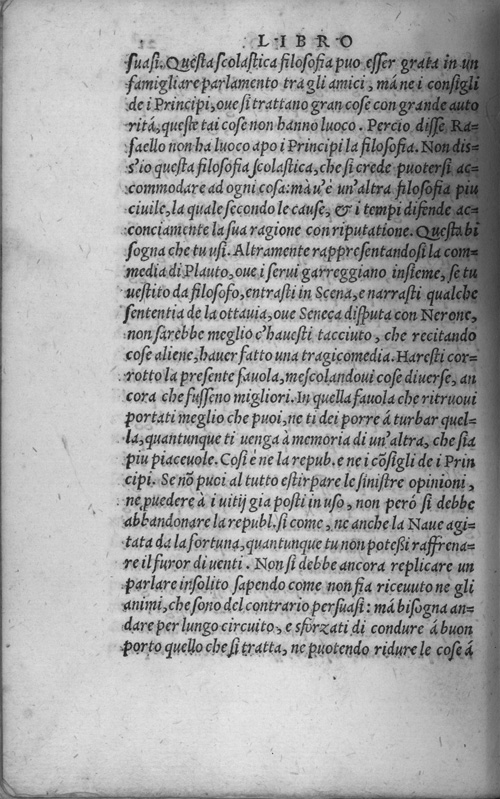 L·I·B·R·O
suasi. Questa scolastica filosofia puo esser grata in un
famigliare parlamento tra gli amici, má ne i consigli
de i Principi, oue si trattano gran cose con grande auto
ritá, queste tai cose non hanno luoco. Percio disse Ra=
faello non ha luoco apo i Principi la filosofia. Non dis=
s'io questa filosofia scolastica, che si crede puotersi ac=
commodare ad ogni cosa: mà u'è un'altra filosofia piu
ciuile, la quale secondo le cause, & i tempi difende ac=
conciamente la sua ragione con riputatione. Questa bi
sogna che tu usi. Altramente rappresentandosi la com=
media di Plauto, oue i serui garreggiano insieme, se tu
uestito da filosofo, entrasti in Scena, e narrasti qualche
sententia de la ottauia, oue Seneca disputa con Nerone,
non sarebbe meglio c'hauesti tacciuto, che recitando
cose aliene, hauer fatto una tragicomedia. Haresti cor=
rotto la presente fauola, mescolandoui cose diuerse, an
cora che fusseno migliori. In quella fauola che ritruoui
portati meglio che puoi, ne ti dei porre á turbar quel=
la, quantunque ti uenga à memoria di un'altra, che sia
piu piaceuole. Cosi é ne la repub. e ne i cõsigli de i Prin
cipi. Se nõ puoi al tutto estirpare le sinistre opinioni,
ne puedere à i uitij gia posti in uso, non peró si debbe
abbandonare la republ. si come, ne anche la Naue agi=
tata da la fortuna, quantunque tu non potessi raffrena=
re il furor di uenti. Non si debbe ancora replicare un
parlare insolito sapendo come non fia riceuuto ne gli
animi, che sono del contrario persuasi: má bisogna an=
dare per lungo circuito, e sforzati di condure á buon
porto quello che si tratta, ne puotendo ridure le cose á